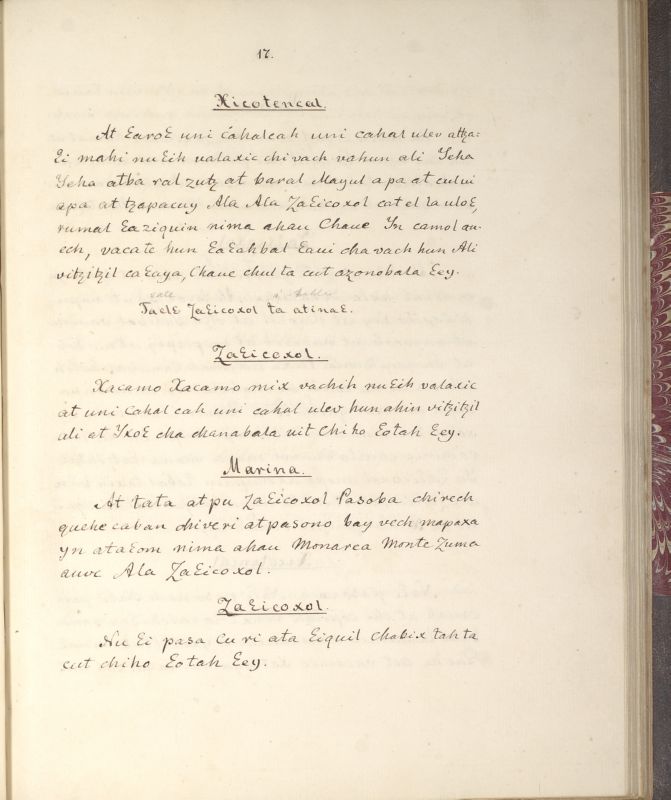 17.
Xicotencal.
At Ɛaroɛ uni cahalcah uni cahal ulev attza:
Ɛi mahi nu Ɛih valaxic chi vach vahun ali Yeha
Yeha atba ral zutz at baral Mayul apa at cului
apa at tzapacuy Ala Ala ZaƐicoxol cat el la uloƐ,
rumal Ɛa ziquin nima ahau Chaue Yn camol au-
ech, vacate hun Ɛa Ɛahbal Ɛaui cha vach hun Ali
vitzitzil ca Ɛaya, Chaue chul ta cut ozonobala Ɛey.
calls
TaelƐ ZaƐicoxol ta atinaƐ.
ZaƐicoxol.
Xacamo Xacamo mix vachih nu Ɛih valaxic
at uni Cahal cah uni cahal ulev hun ahin vitzitzil
ali at YxoƐ cha chanabala uit Chiho Ɛotah Ɛey.
Marina.
At tata atpu ZaƐicoxol Pasoba chirech
quehe caban chiveri atpasono bay vech mapaxa
yn ataƐom nima ahau Monarca Monte Zuma
auve Ala ZaƐicoxol.
ZaƐicoxol.
Nu Ɛi pasa Cu ri ata Ɛiquil chabix tah ta
cut chiho Ɛotah Ɛey.